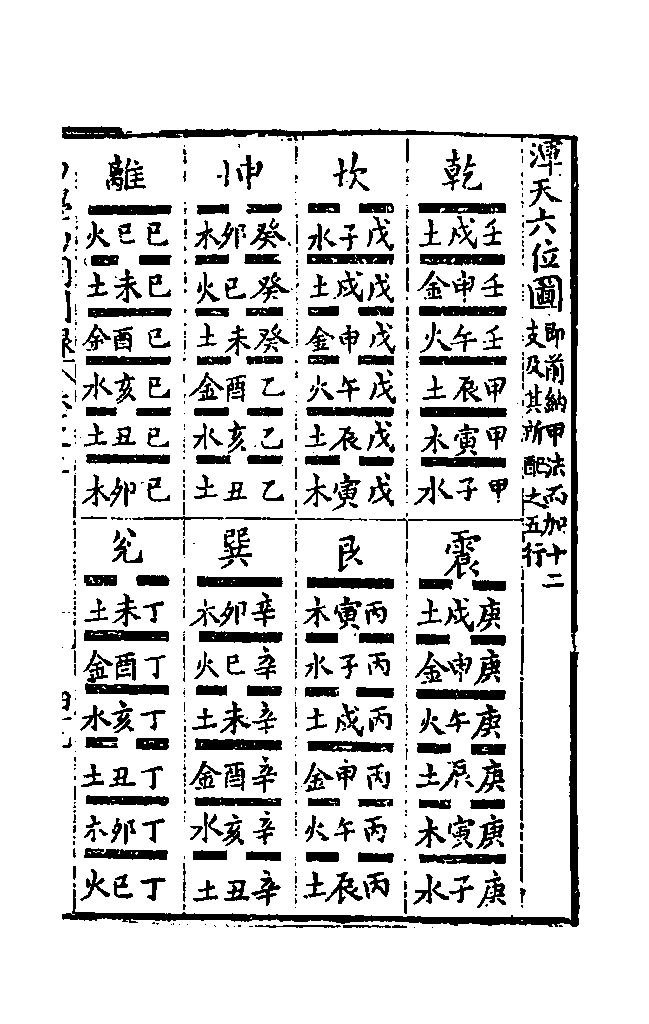 渾天六位圖
即前納甲法而加十二
支及其所配之五行
乾
壬戌土
壬申金
壬午火
甲辰土
甲寅木
甲子水
坎
戊子水
戊戌土
戊申金
戊午火
戊辰土
戊寅木
坤
癸卯木
癸巳火
癸未土
乙酉金
乙亥水
乙丑土
離
己巳火
己未土
己酉金
己亥水
己丑土
己卯木
震
庚戌土
庚申金
庚午火
庚辰土
庚寅木
庚子水
艮
丙寅木
丙子水
丙戌土
丙申金
丙午火
丙辰土
巽
辛卯木
辛巳火
辛未土
辛酉金
辛亥水
辛丑土
兌
丁未土
丁酉金
丁亥水
丁丑土
丁卯木
丁巳火